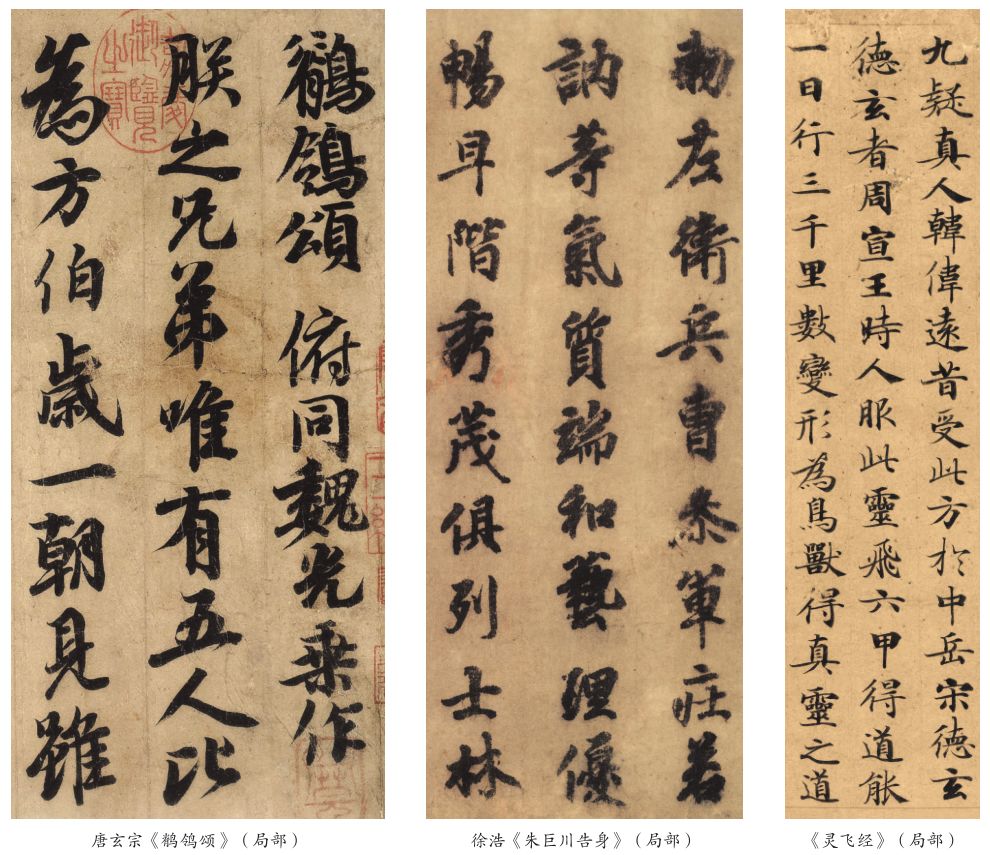 嘉慶御覽之寶
鶺鴒頌 俯同魏光乗作
朕之兄弟唯有五人比
為方伯歲一朝見雖
唐玄宗《鹡鸰颂》（局部）
勑左衛兵曹叅軍庄若
訥等氣質端和藝理優
暢早階秀茂俱列士林
徐浩《朱巨川告身》（局部）
九疑真人韓偉遠昔受此方於中岳宋德玄
德玄者周宣王時人服此靈飛六甲得道能
一日行三千里數變形為鳥獸得真靈之道
《灵飞经》（局部）